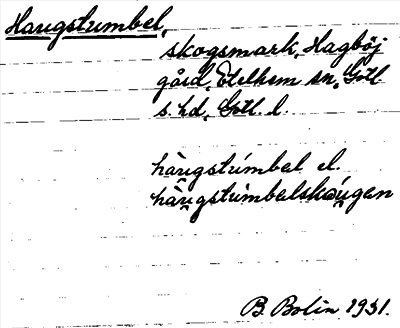 Haugstumbel,
skogsmark, Hagböj
gård, Etelhem sn, Gotl.
s. hd, Gotl. l.
hàu̯gstúmbel el.
hàu̯gstùmbelskǿu̯gen
B. Bolin 1931.